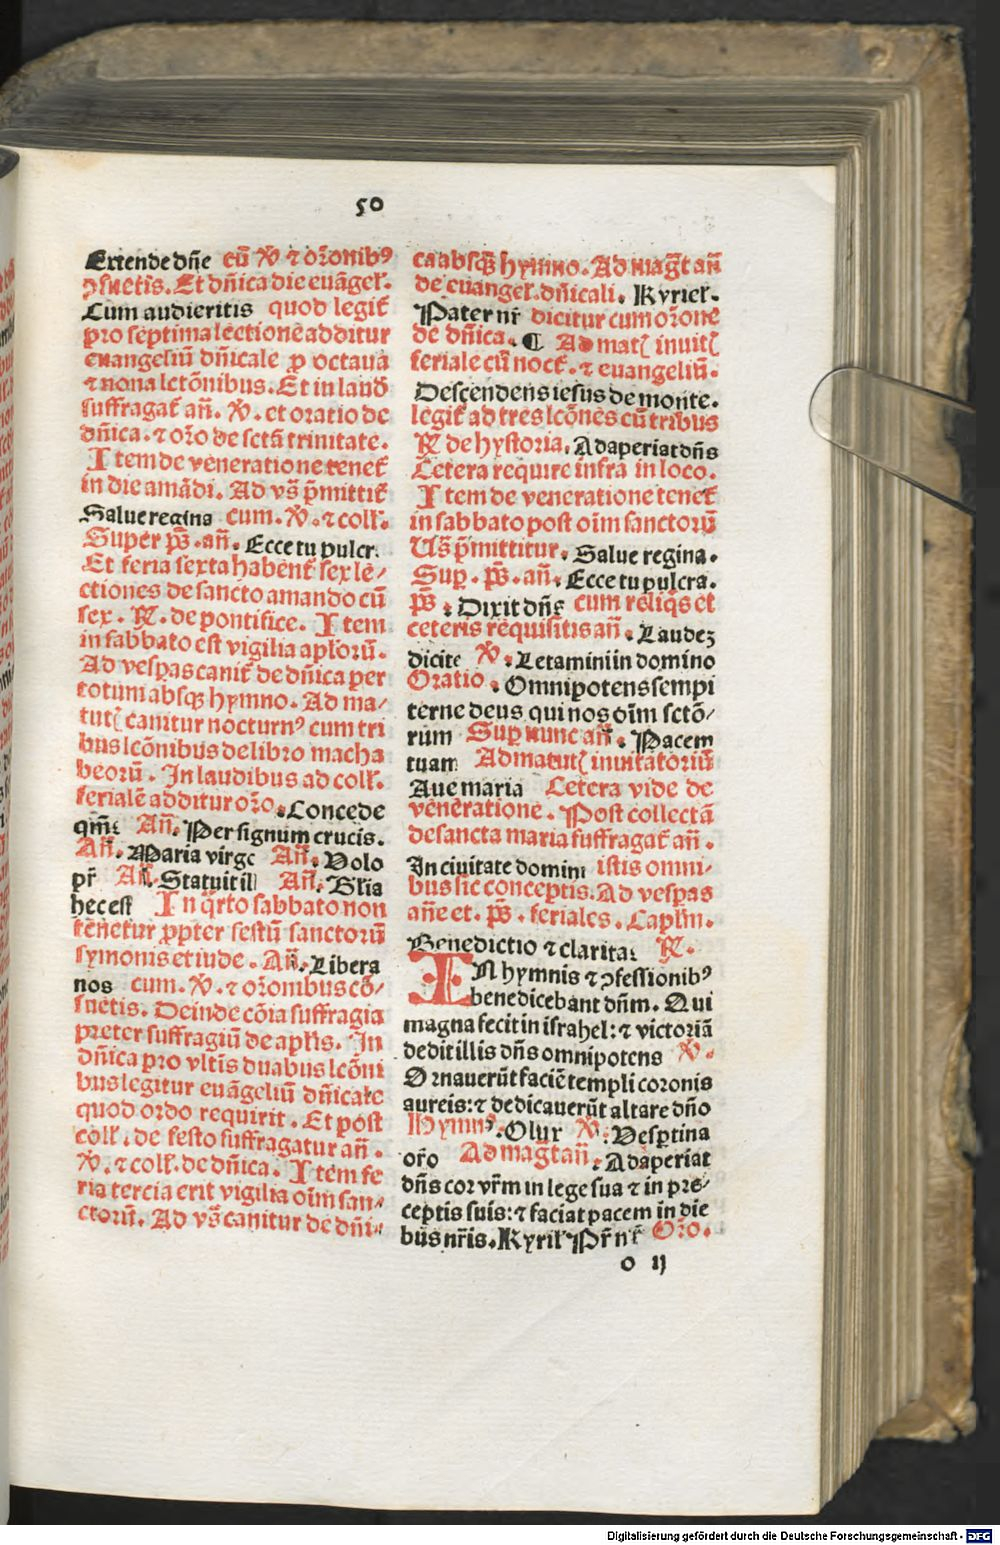 50
Extende dñe cũ ꝟ ⁊ oẜonibꝰ
ꝯsuetis. Et dñica die euãgeł.
Cum audieritis quod legit̃
pro septima lectione additur
euangeliũ dñicale p octauã
⁊ nona lctõnibus. Et in laud̃
suffragat̃ añ. ꝟ. et oratio de
dñica. ⁊ oẜo de sctã trinitate.
Item de veneratione tenet̃
in die amãdi. Ad vs̃ p̃mittit̃
Salue regina cum. ꝟ. ⁊ coll̃.
Super ps̃. añ. Ecce tu pulcr
Et feria sexta habent̃ sex le⸗
ctiones de sancto amando cũ
sex. ℟. de pontifice. Item
in sabbato est vigilia apl̃orũ.
Ad vesp̃as canit̃ de dñica per
totum absqꝫ hymno. Ad ma⸗
tut̃ canitur nocturnꝰ cum tri
bus lcõnibus de libro macha
beorũ. In laudibus ad coll̃.
ferialẽ additur oẜo. Concede
qm̃e Añ. Per signum crucis.
Añ. Maria virgo Añ. Volo
pr̃ Añ. Statuit ill Añ. Bl̃ia
hec est In q̃rto sabbato non
tenetur ꝓpter festũ sanctorũ
symonis et iude. Añ. Libera
nos cum. ꝟ. ⁊ oẜonibus cõ⸗
suetis. Deinde cõia suffragia
preter suffragiũ de apl̃is. In
dñica pro vltis duabus lcõni
bus legitur euãgeliũ dñicale
quod ordo requirit. Et post
coll̃. de festo suffragatur añ.
ꝟ. ⁊ coll̃. de dñica. Item fe
ria tercia erit vigilia oĩm san⸗
ctorũ. Ad vs̃ canitur de dñi⸗
ca absqꝫ hymno. Ad mag̃t añ
de euangel̃. dñicali. Kyriel̃.
Pater nr̃ dicitur cum oẜone
de dñica. ¶ Ad mat̃ inuit̃
feriale cũ noct̃. ⁊ euangeliũ.
Descendens iesus de monte.
legit̃ ad tres lcõnes cũ tribus
℟ de hystoria. Adaperiat dñs
Cetera require infra in loco.
Item de veneratione tenet̃
in sabbato post oĩm sanctorũ
Vs̃ p̃mittitur. Salue regina.
Sup. ps̃. añ. Ecce tu pulcra.
ps̃. Dixit dñs cum reliq̃s et
ceteris requisitis añ. Laudeꝫ
dicite ꝟ. Letamini in domino
Oratio. Omnipotens sempi
terne deus qui nos oĩm sctõ⸗
rum Sup nunc añ. Pacem
tuam Ad matut̃ inuitatoriũ
Aue maria Cetera vide de
veneratione. Post collectã
de sancta maria suffragat̃ añ.
In ciuitate domini istis omni⸗
bus sic conceptis. Ad vesp̃as
añe et. ps̃. feriales. Capl̃m.
Benedictio ⁊ claritas ℟.
IN hymnis ⁊ ꝯfessionibꝰ
benedicebant dñm. Qui
magna fecit in israhel: ⁊ victoriã
dedit illis dñs omnipotens ꝟ.
Ornauerũt faciẽ templi coronis
aureis: ⁊ dedicauerũt altare dño
Hymnꝰ. Olur ꝟ. Vesp̃tina
or̃o Ad mag̃t añ. Adaperiat
dñs cor vr̃m in lege sua ⁊ in pre⸗
ceptis suis: ⁊ faciat pacem in die
bus nr̃is. Kyril̃ Pr̃ nr̃ Oẜo.
o ij
Digitalisierung gefördert durch die Deutsche Forschungsgemeinschaft - DFG